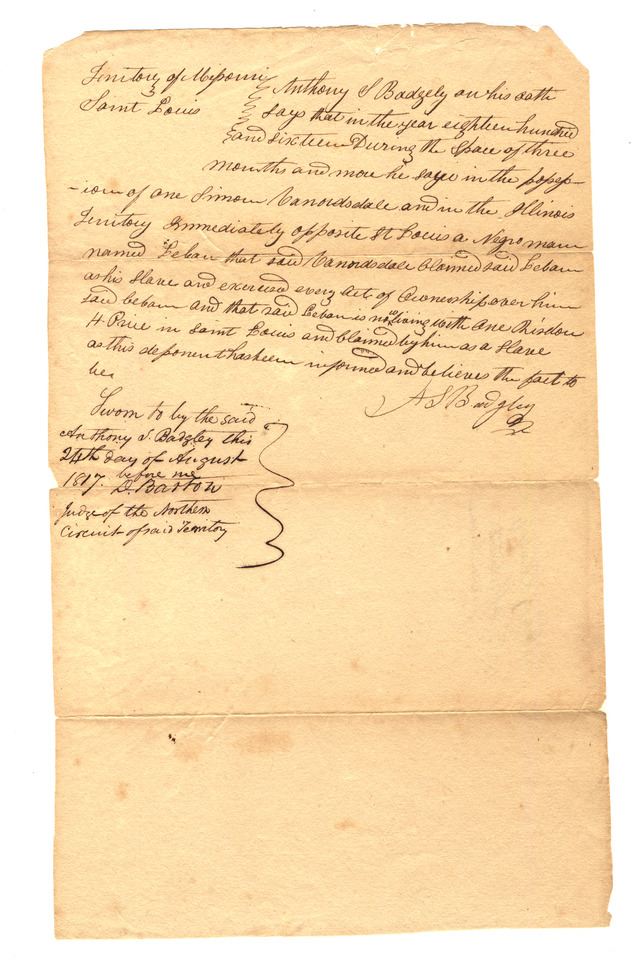 Territory of Missouri
Saint Louis
Anthony S Badgely on his oath
says that in the year eighteen hundred
and sixteen During the Space of three
months and more he saw in the posses-
-ion of one Simon Vanorsdale and in the Illinois
Territory Immediately opposite St Louis a Negro man
named Leban that said Vanorsdale claimed said Leban
as his Slave and exercised every Act of Ownership over him
said Leban and that said Leban is now living with one Risdon
H Price in Saint Louis and claimed by him as a Slave
as this deponent has been informed and believes the fact to
be.
A S Badgley
Sworn to by the said
Anthony S. Badgley this
24th day of August
1817. before me
D. Barton
Judge of the Northern
Circuit of said Territory